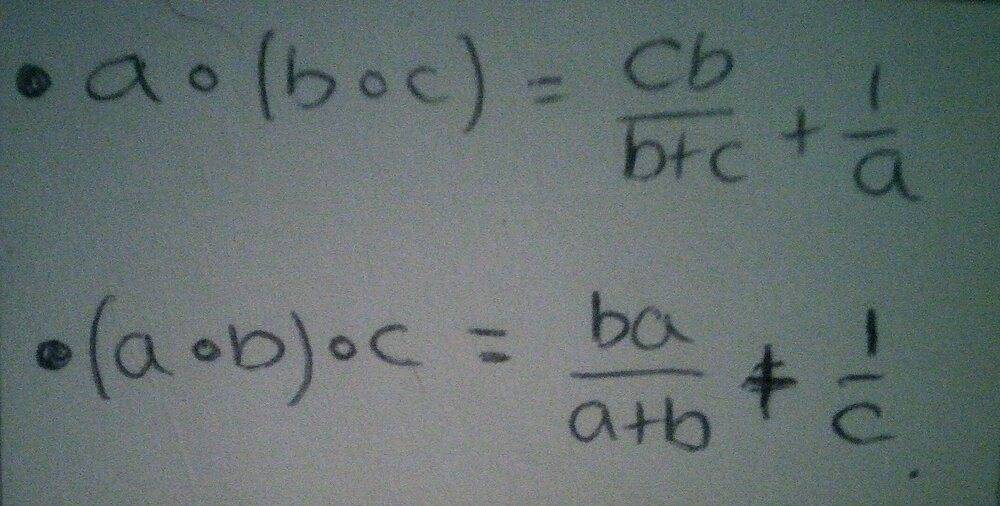 • a∘(b∘c) = cb/(b+c) + 1/a
• (a∘b)∘c = ba/(a+b) + 1/c .